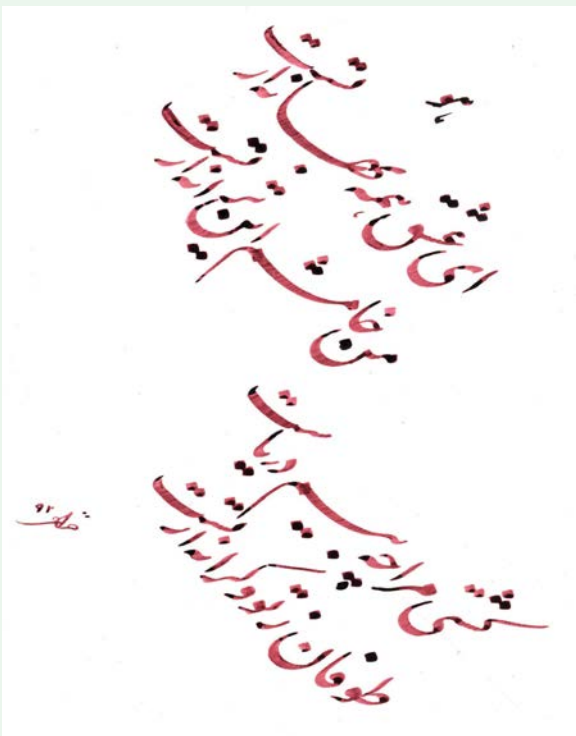 ای عشق همه بهانه از تست
من خامشم این ترانه از تست
کشتی مرا چه بیم دریاست
طوفان ز تو و کرانه از تست
۹۲